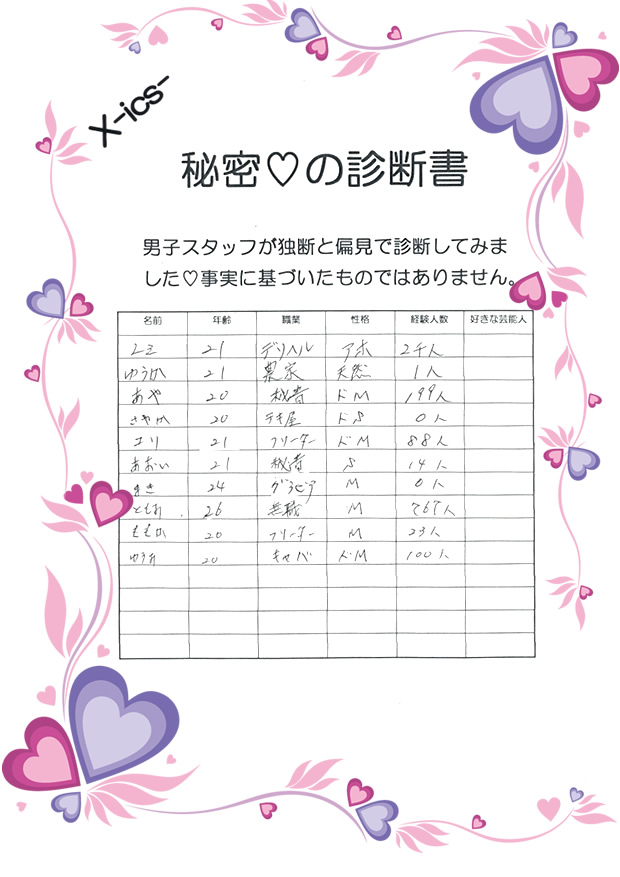 X-ics-
秘密♡の診断書
男子スタッフが独断と偏見で診断してみま
した♡事実に基づいたものではありません。
名前 年齢 職業 性格 経験人数 好きな芸能人
レミ 21 デリヘル アホ 2千人
ゆうか 21 農家 天然 1人
あや 20 秘書 ドM 199人
さやか 20 テキ屋 ドS 0人
ユリ 21 フリーター ドM 88人
あおい 21 秘書 S 14人
まき 24 グラビア M 0人
ともみ 26 無職 M 767人
ももか 20 フリーター M 23人
ゆうみ 20 キャバ ドM 100人